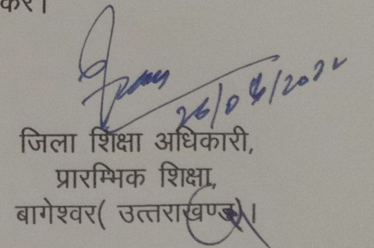 करें।
26/04/2022
जिला शिक्षा अधिकारी,
प्रारम्भिक शिक्षा,
बागेश्वर( उत्तराखण्ड)।